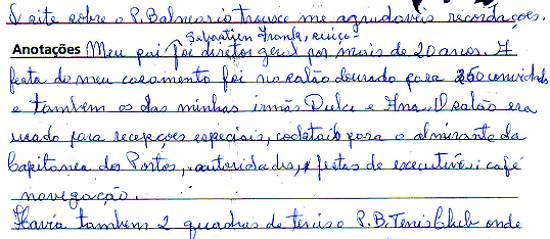 O site sobre o P. Balneario trouxe me agradaveis recordações.
Sebastien Frank, suiço
Anotações Meu pai foi diretor geral por mais de 20 anos. A
festa do meu casamento foi no salão dourado para 250 convidados
e tambem os das minhas irmãs Dulce e Ana. O salão era
usado para recepções especiais, cocktails para o almirante da
Capitanea dos Portos, autoridades, festas de executivos, café
navegação.
Havia tambem 2 quadras de tenis o P.B. Tenis Club onde